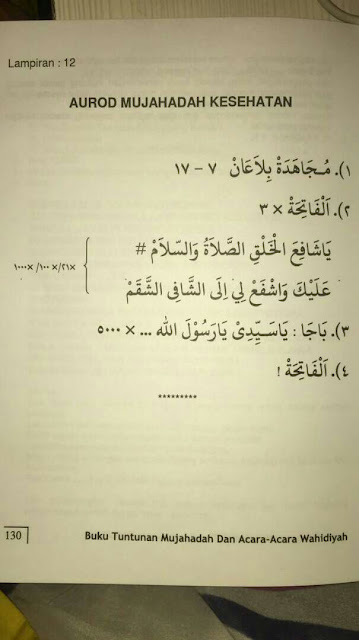 Lampiran : 12
AUROD MUJAHADAH KESEHATAN
١). مُجَاهَدَةْ بِلاَعَانْ ٧ – ١٧
٢). اَلْفَاتِحَةْ × ٣
يَاشَافِعَ الْخَلْقِ الصَّلاَةُ وَالسَّلاَمْ #
عَلَيْكَ وَاشْفَعْ لِي إِلَى الشَّافِى الشَّقَمْ
×٢١/×١٠٠/×١٠٠٠
٣). بَاجَا : يَاسَيِّدِىْ يَارَسُوْلَ الله ... × ٥٠٠٠
٤). اَلْفَاتِحَةْ !
*********
130
Buku Tuntunan Mujahadah Dan Acara-Acara Wahidiyah